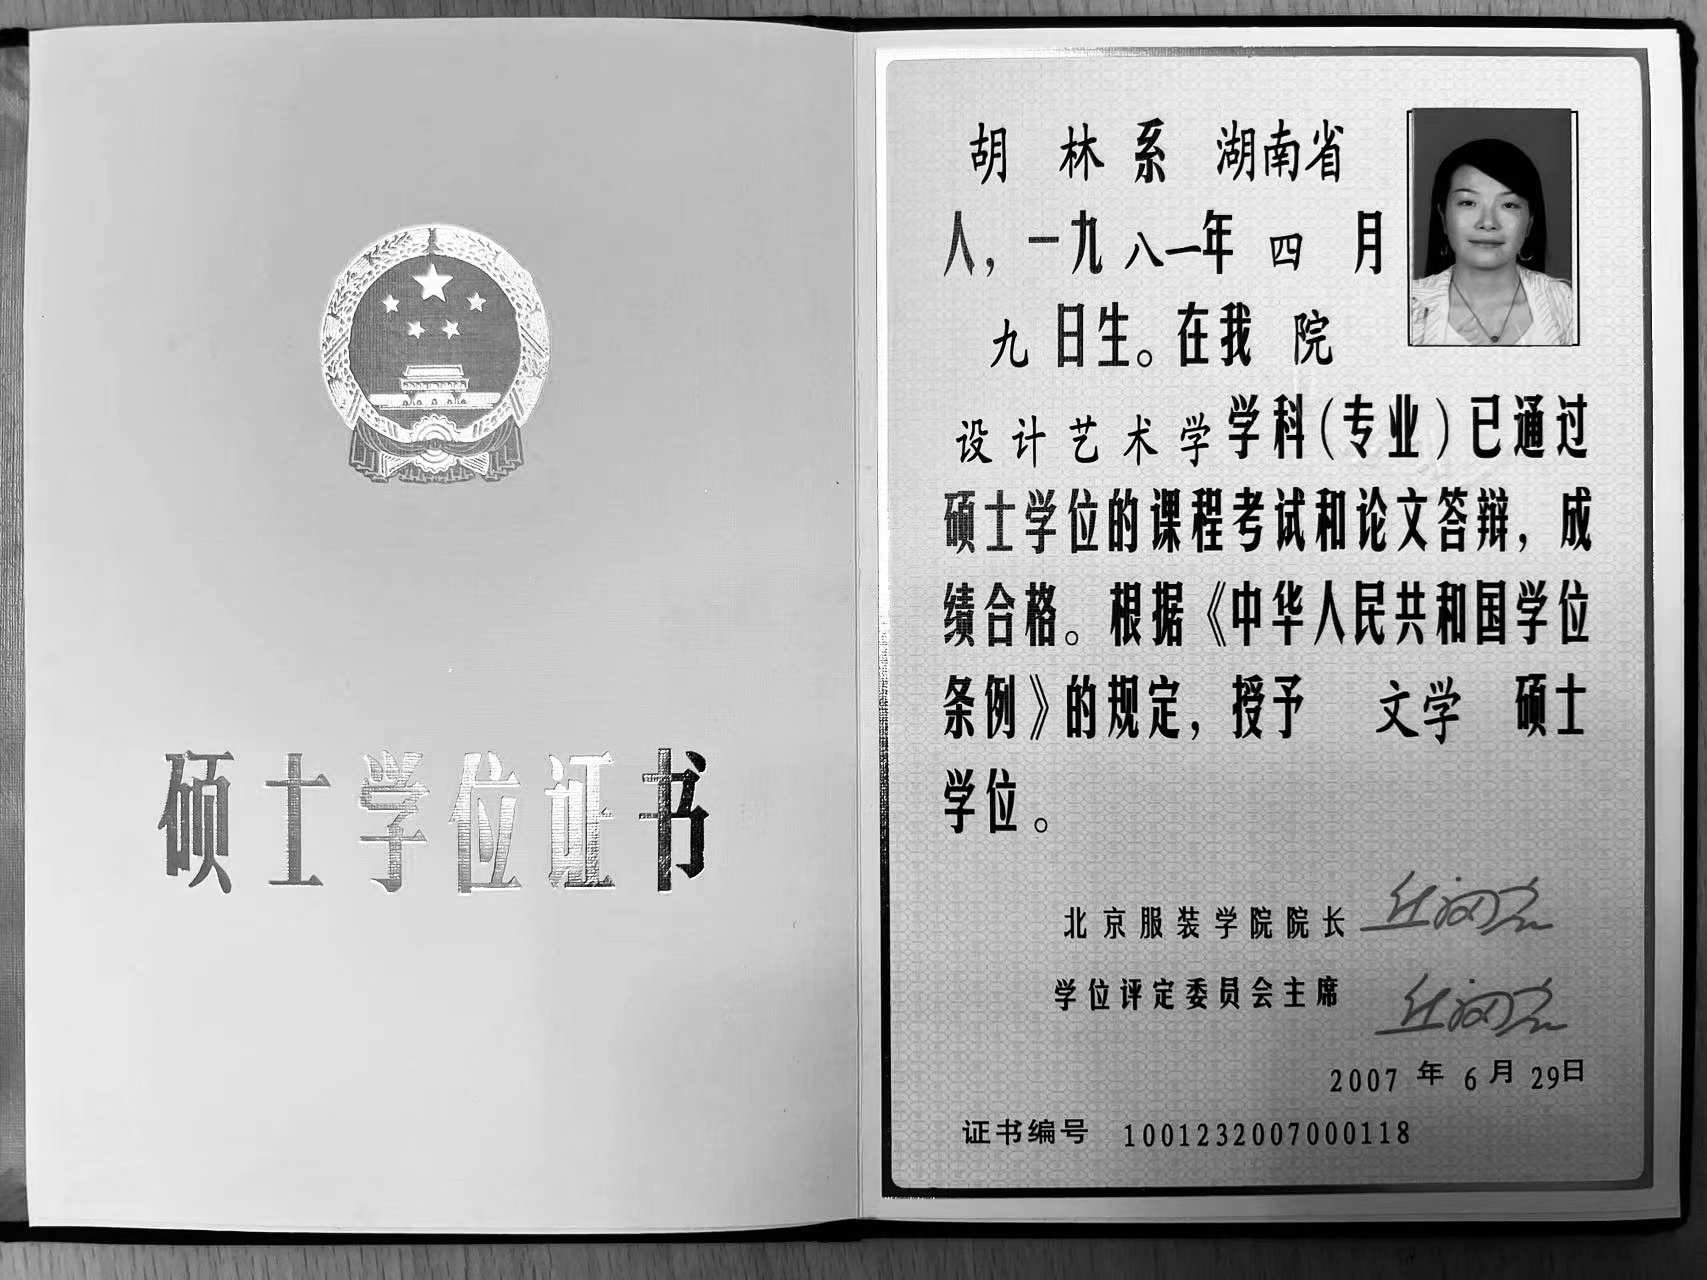 硕士学位证书
胡 林 系 湖南省
人，一九八一年 四 月
九 日生。在我 院
设计艺术学学科(专业)已通过
硕士学位的课程考试和论文答辩，成
绩合格。根据《中华人民共和国学位
条例》的规定，授予 文学 硕士
学位。
北京服装学院院长
学位评定委员会主席
2007 年 6 月 29日
证书编号 1001232007000118